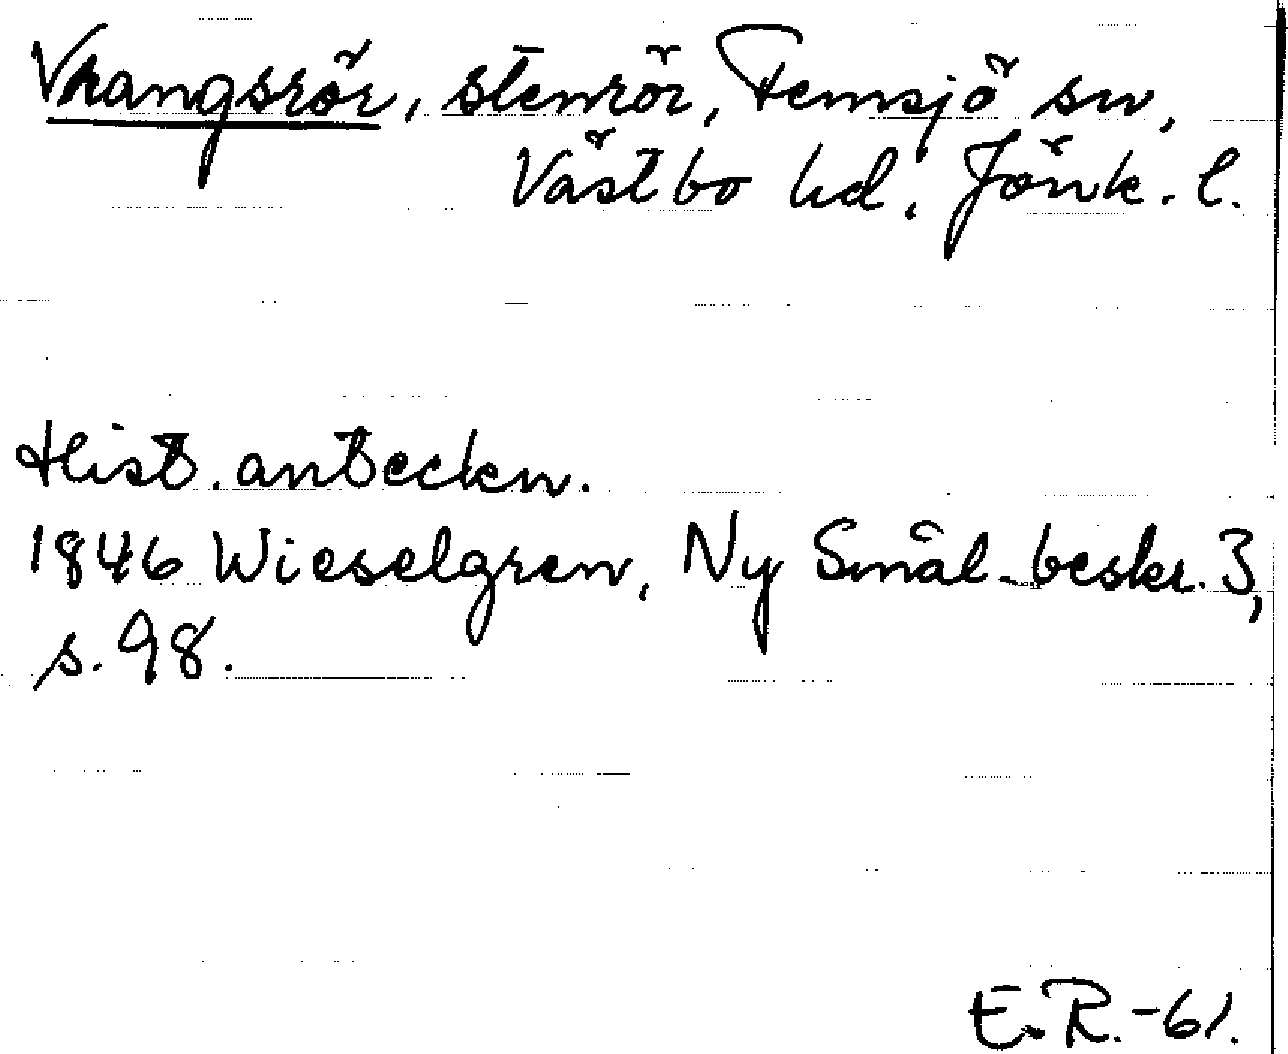 Vrangsrör, stenrör, Femsjö sn,
Västbo hd, Jönk. l.
Hist. anteckn.
1846 Wieselgren, Ny Smål. beskr. 3,
s. 98.
E.R.-61.